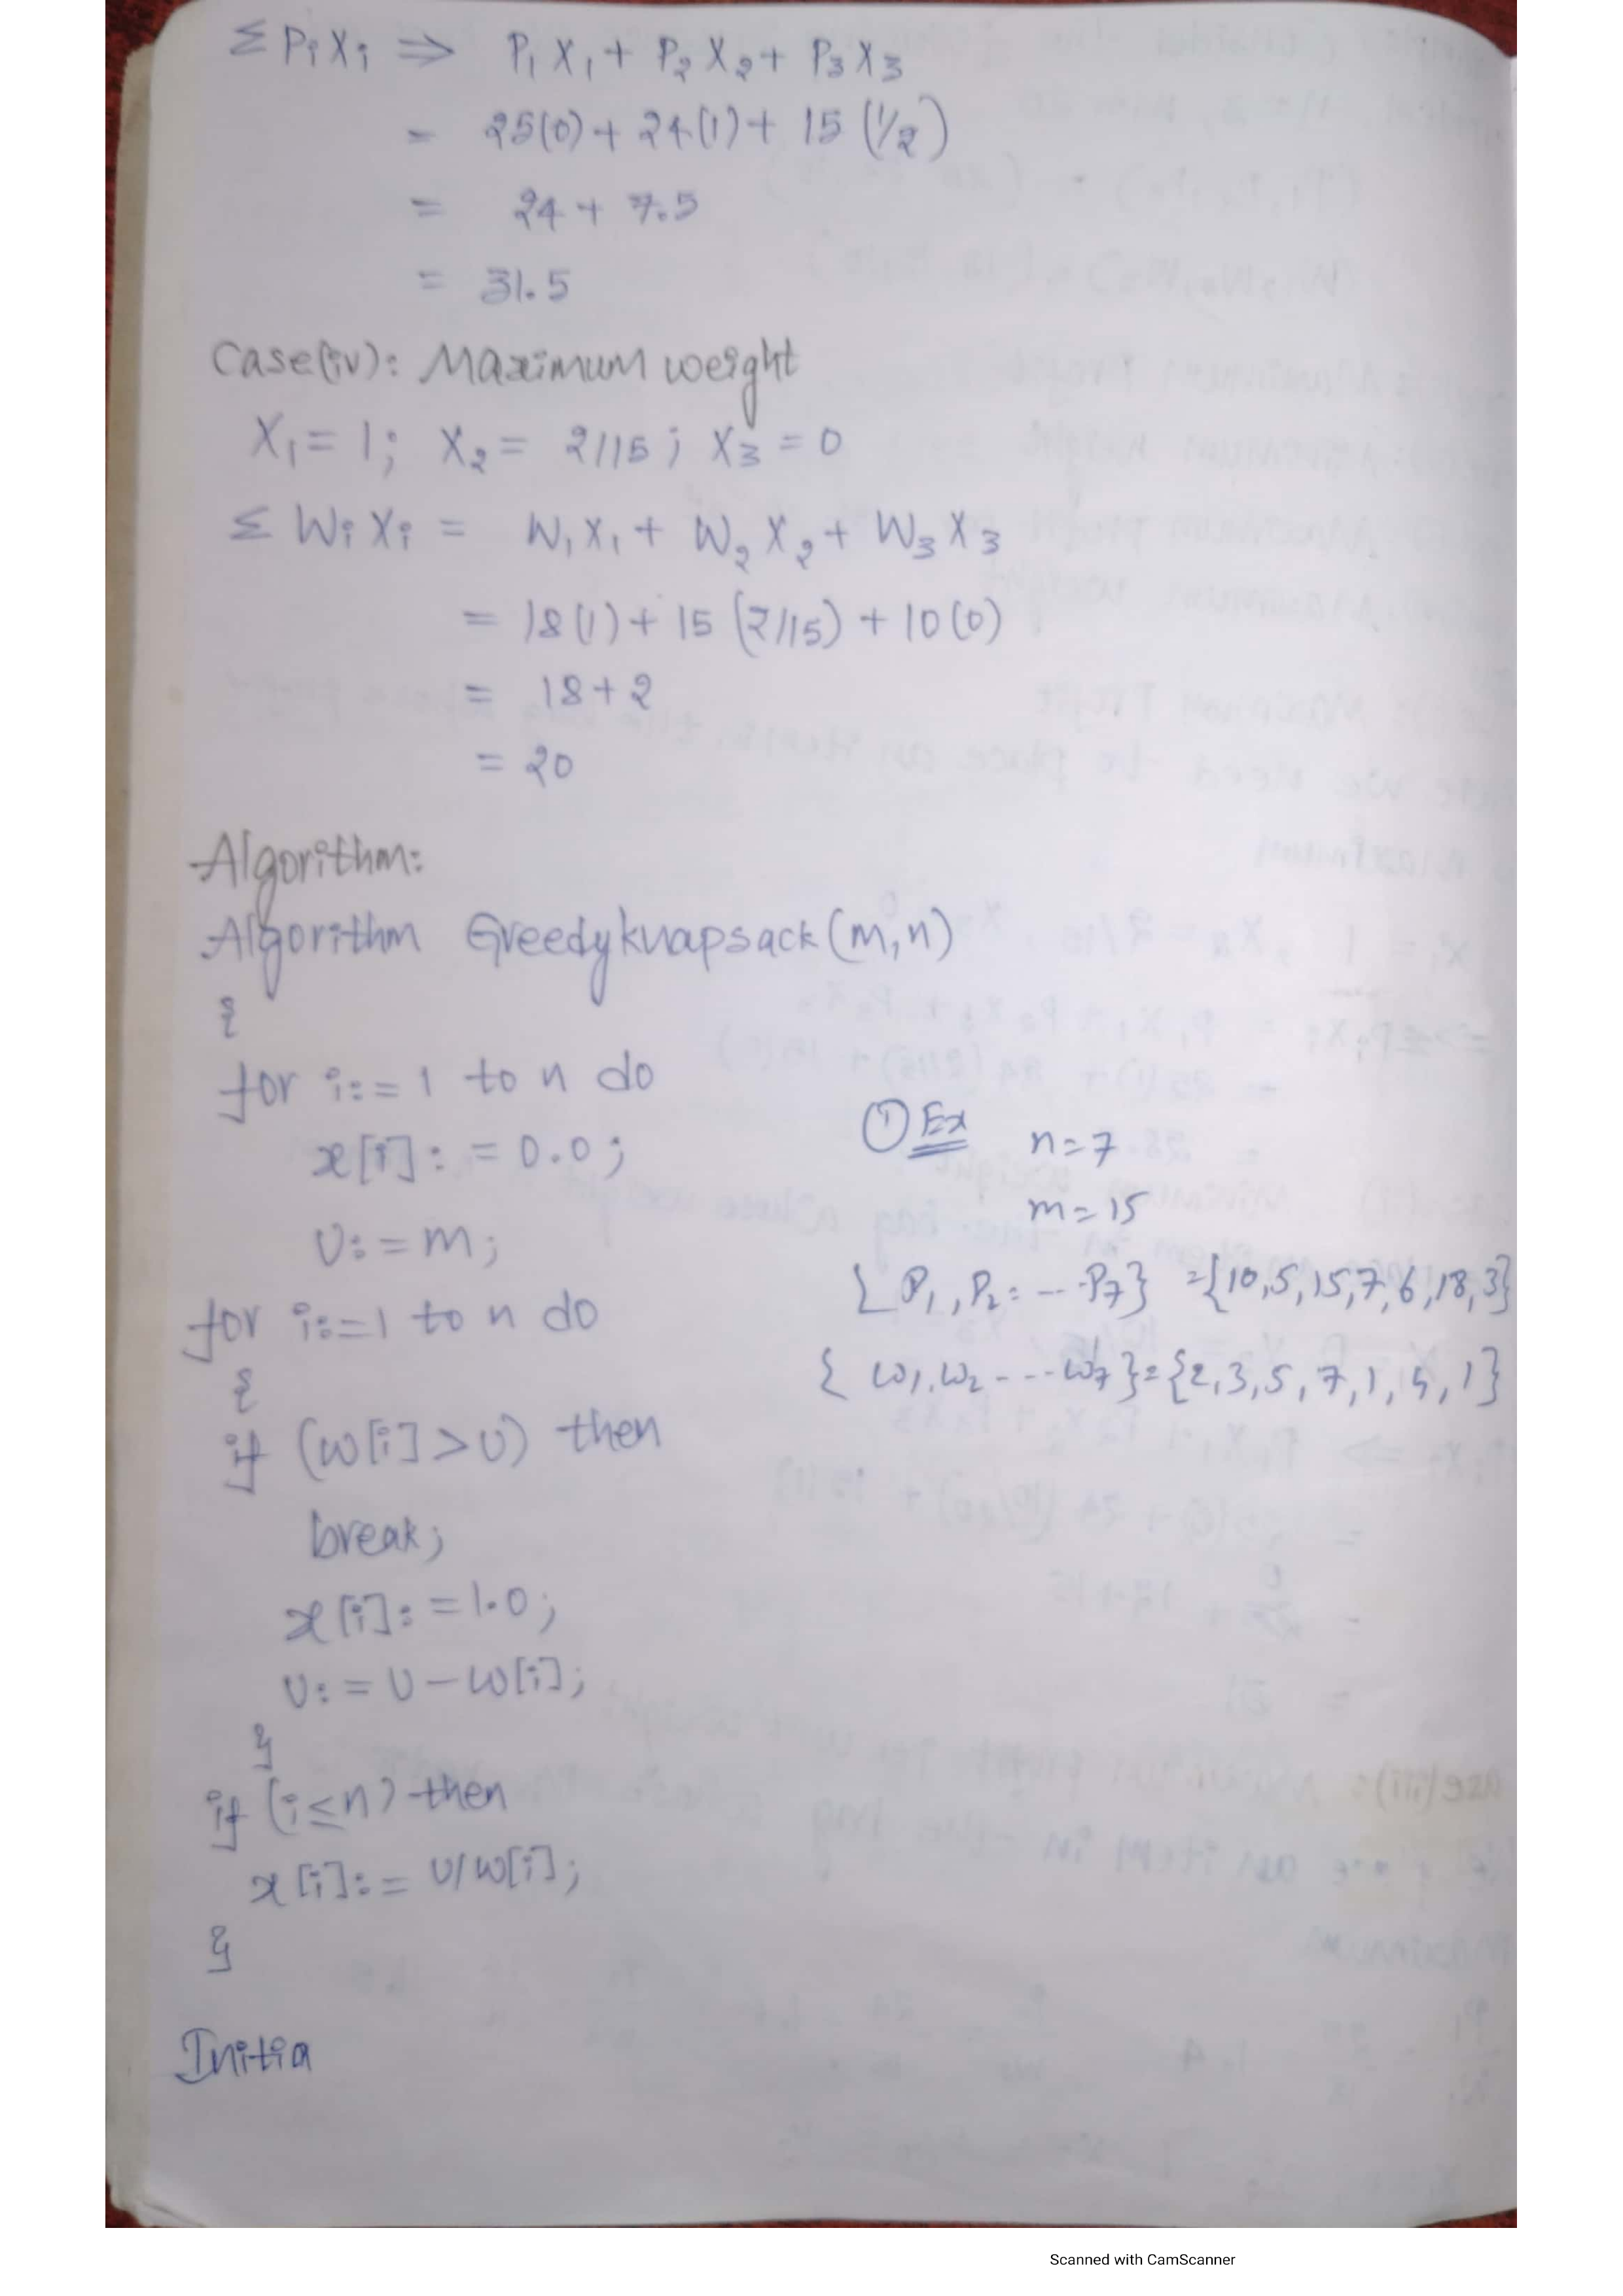 Σ Pi Xi ⇒ P1 X1 + P2 X2 + P3 X3
= 25(0) + 24(1) + 15 (1/2)
= 24 + 7.5
= 31.5
Case(iv): Maximum weight
X1 = 1; X2 = 2/15; X3 = 0
Σ Wi Xi = W1 X1 + W2 X2 + W3 X3
= 18(1) + 15 (2/15) + 10(0)
= 18+2
= 20
Algorithm:
Algorithm Greedyknapsack(m,n)
{
for i:=1 to n do
x[i]:=0.0;
U:=m;
for i:=1 to n do
{
if (w[i]>U) then
break;
x[i]:=1.0;
U:=U-w[i];
}
if (i≤n) then
x[i]:= U/w[i];
}
Initia
① Ex n=7
m=15
{P1,P2:---P7} ={10,5,15,7,6,18,3}
{W1,W2---W7}={2,3,5,7,1,4,1}
Scanned with CamScanner